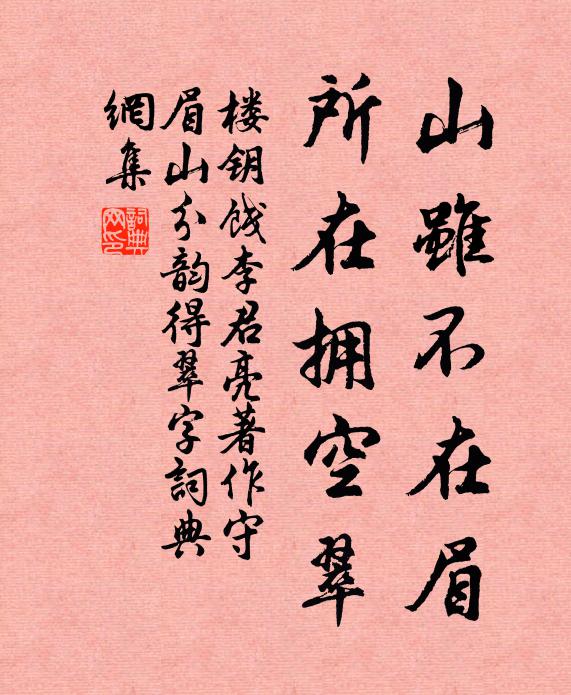 山雖不在眉
所在拥空翠
楼钥饯李君亮著作守
眉山分韵得翠字詞典
網集
詞典
网印